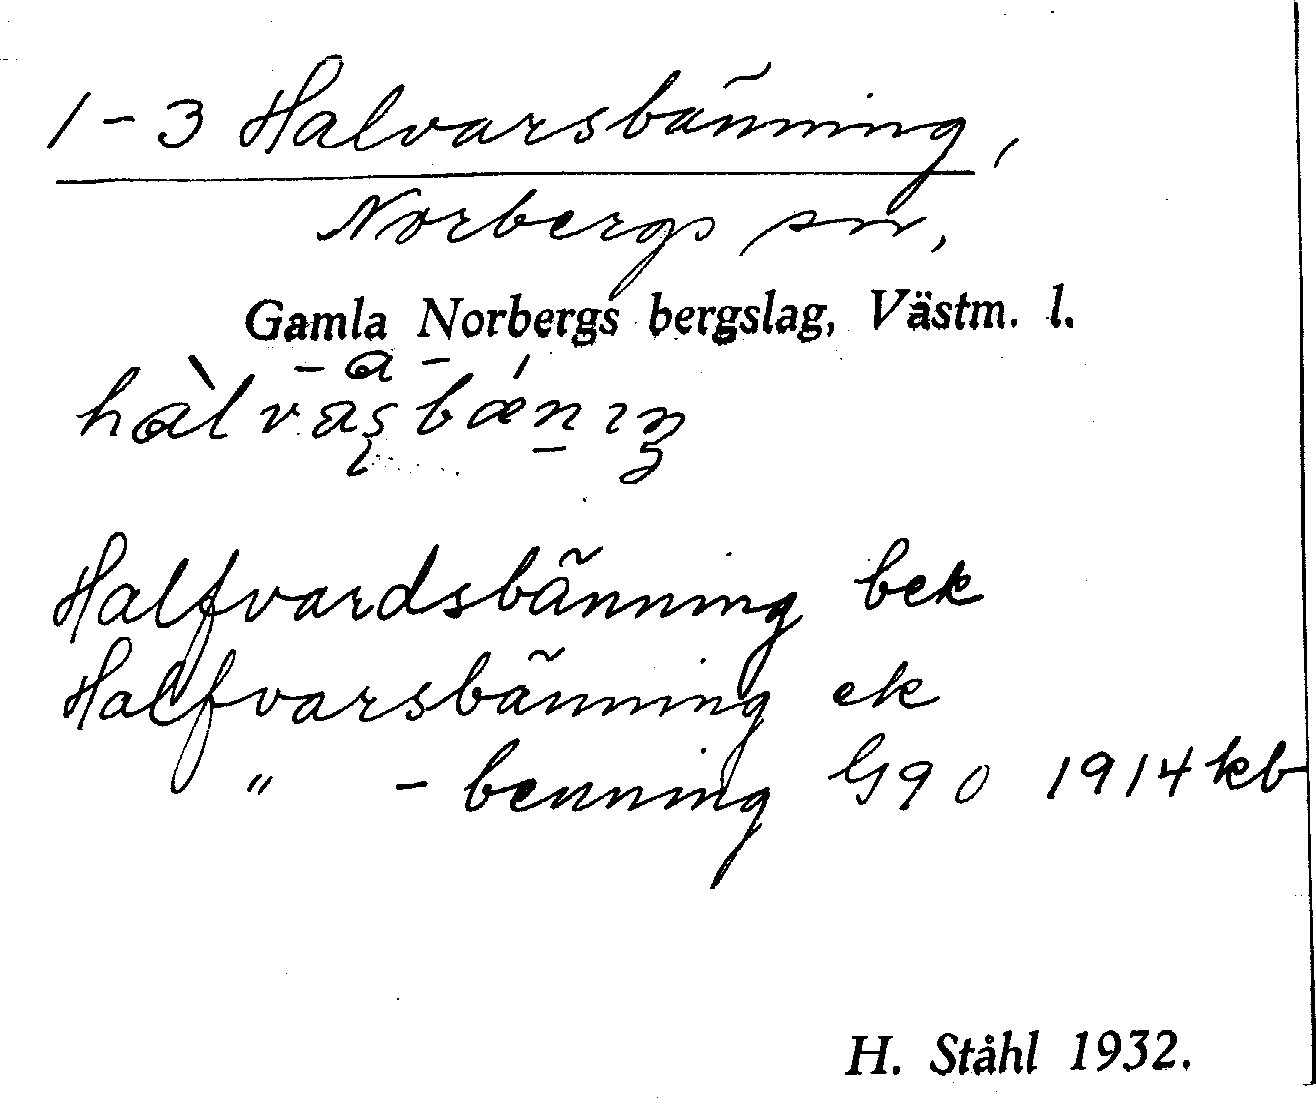 1-3 Halvarsbänning,
Norbergs sn,
Gamla Norbergs bergslag, Västm. l.
-a-
hàlvaʂbǽnıŋ
Halfvardsbänning bek
Halfvarsbänning ek
" -benning G90 1914 kb
H. Ståhl 1932.